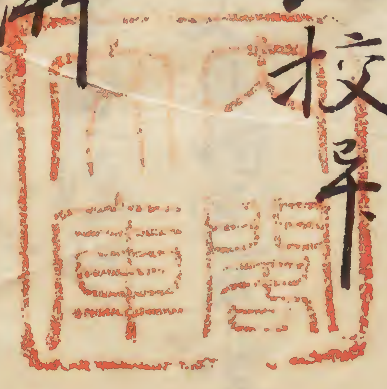 校
内閣
文庫